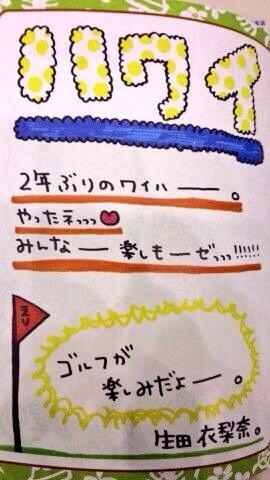 ハワイ
2年ぶりのワイハー。
やったネっっ
みんなー 楽しもーぜっっ!!!!!!
えり
ゴルフが
楽しみだよー。
生田 衣梨奈。